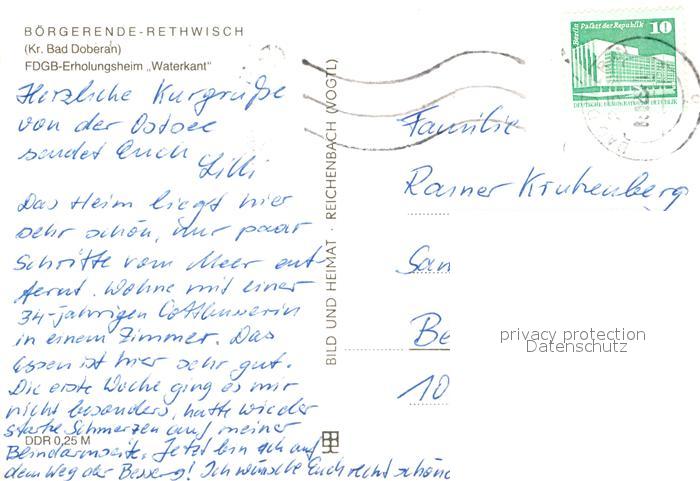 BÖRGERENDE-RETHWISCH
(Kr. Bad Doberan)
FDGB-Erholungsheim „Waterkant"
Herzliche Kurgrüße
von der Ostsee
sendet Euch
Lilli
Das Heim liegt hier
sehr schön, nur paar
Schritte vom Meer ent-
fernt. Wohne mit einer
34-jährigen Cottbuserin
in einem Zimmer. Das
Essen ist hier sehr gut.
Die erste Woche ging es mir
nicht besonders, hatte wieder
starke Schmerzen auf meiner
Blindarmseite. Jetzt bin ich auf
dem Weg der Besserg! Ich wünsche Euch recht schöne
DDR 0,25 M
BILD UND HEIMAT · REICHENBACH (VOGTL)
Berlin Palast der Republik
10
DEUTSCHE DEMOKRATISCHE REPUBLIK
Familie
Rainer Kruhenberg
San
Be
10
privacy protection
Datenschutz